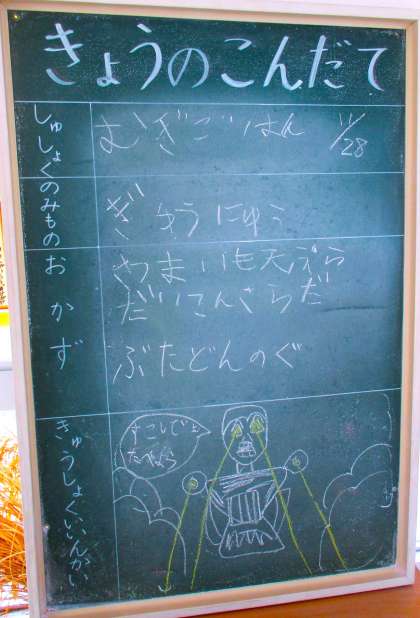 きょうのこんだて
しゅしょく
むぎごはん 11/28
のみもの
ぎゅうにゅう
おかず
さつまいも天ぷら
だいこんさらだ
ぶたどんのぐ
きゅうしょくいいんかい
すこしでも
たべよう